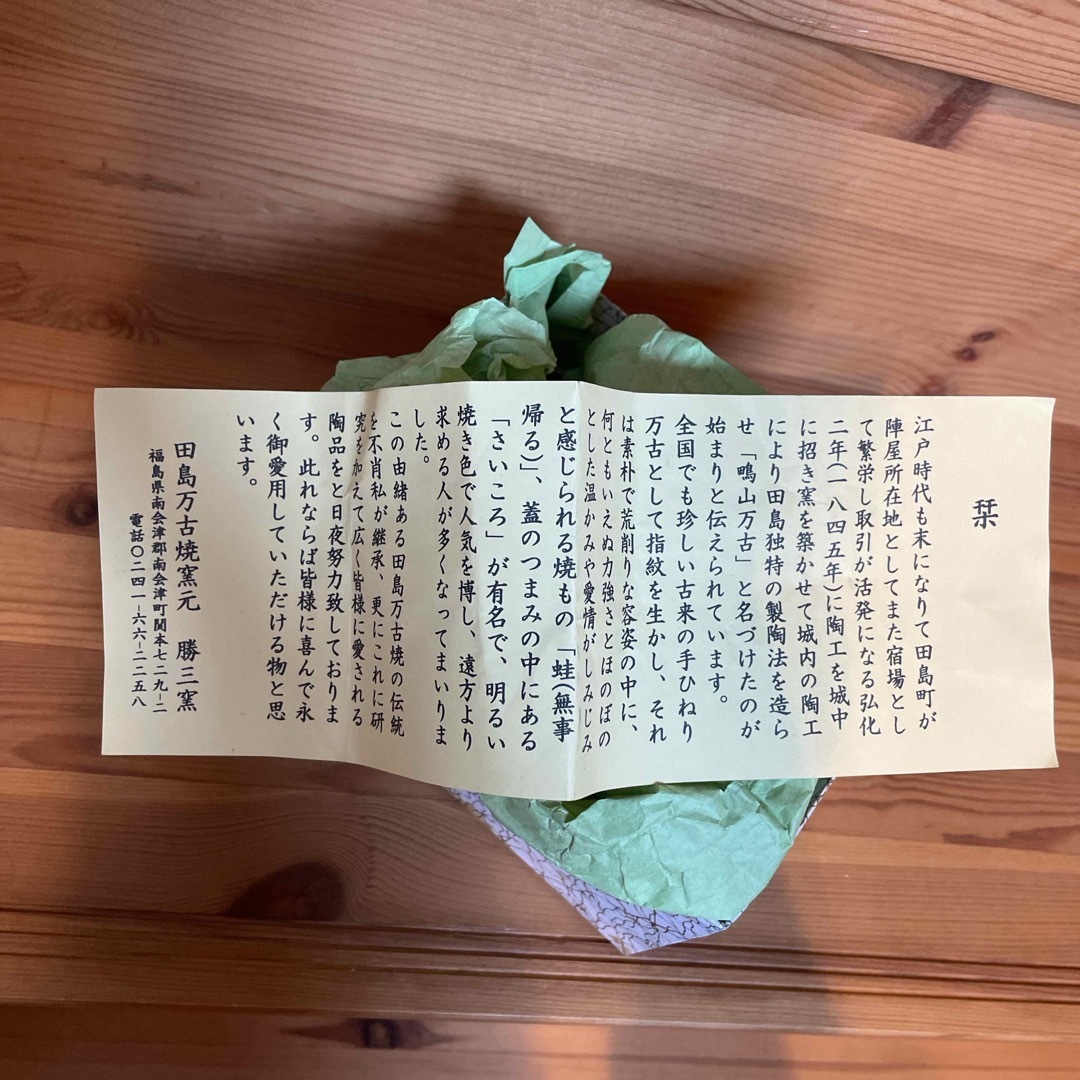 栞
江戸時代も末になりて田島町が
陣屋所在地としてまた宿場とし
て繁栄し取引が活発になる弘化
二年(一八四五年)に陶工を城中
に招き窯を築かせて城内の陶工
により田島独特の製陶法を造ら
せ「鴫山万古」と名づけたのが
始まりと伝えられています。
全国でも珍しい古来の手ひねり
万古として指紋を生かし、それ
は素朴で荒削りな容姿の中に、
何ともいえぬ力強さとほのぼの
とした温かみや愛情がしみじみ
と感じられる焼もの「蛙(無事
帰る)」、蓋のつまみの中にある
「さいころ」が有名で、明るい
焼き色で人気を博し、遠方より
求める人が多くなってまいりま
した。
この由緒ある田島万古焼の伝統
を不肖私が継承、更にこれに研
究を加えて広く皆様に愛される
陶品をと日夜努力致しておりま
す。此れならば皆様に喜んで永
く御愛用していただける物と思
います。
田島万古焼窯元 勝三窯
福島県南会津郡南会津町関本七二九ー二
電話〇二四一ー六六ー二二五八